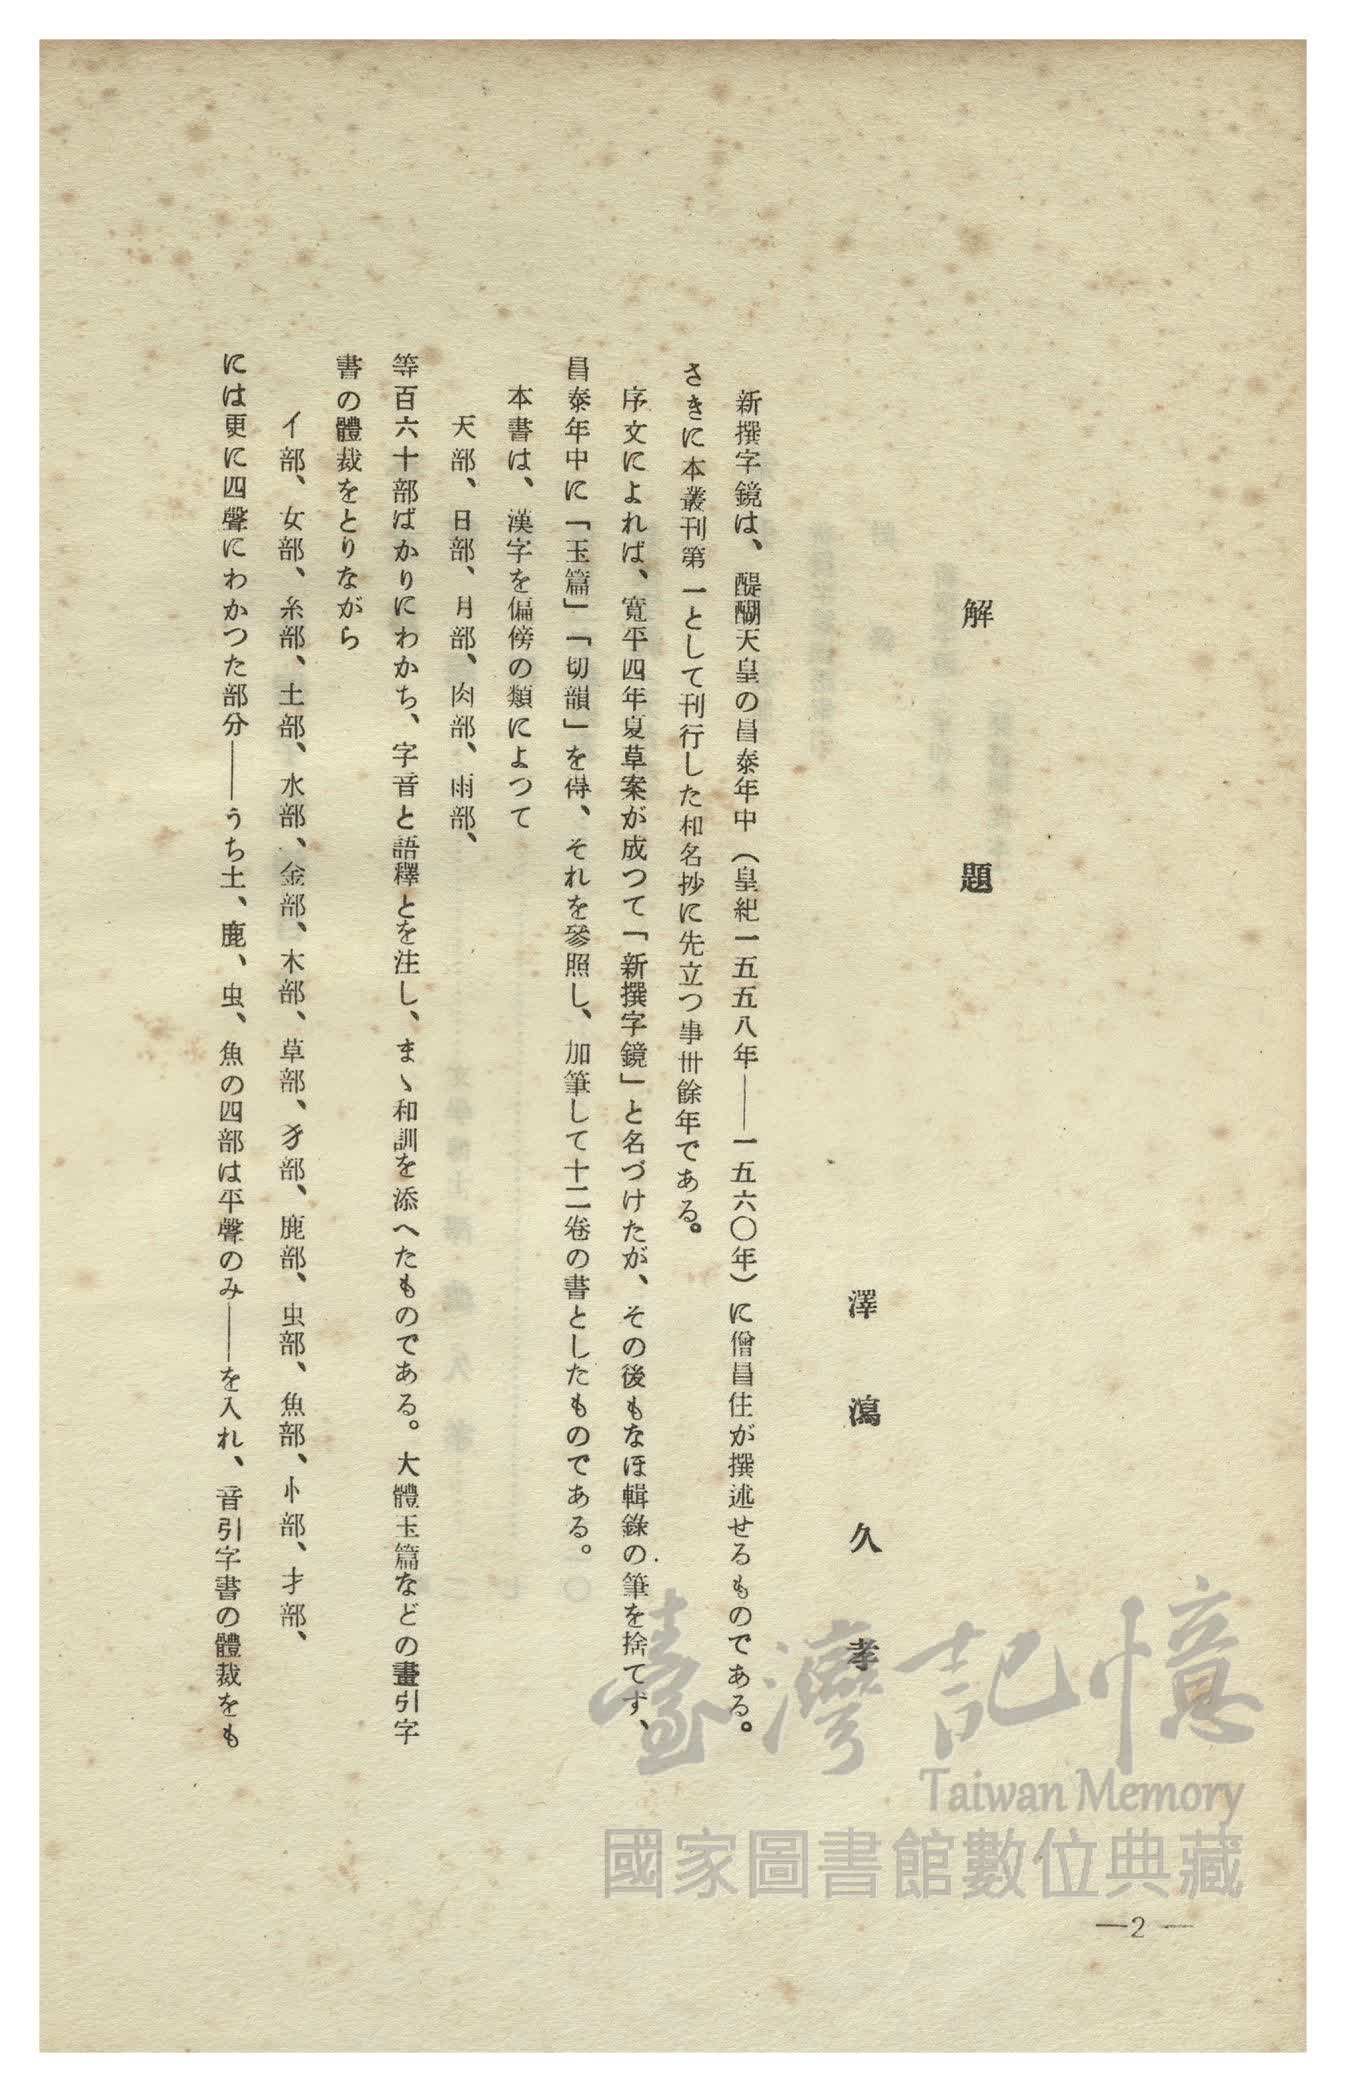 解題
澤瀉久孝
新撰字鏡は、醍醐天皇の昌泰年中（皇紀一五五八年——一五六〇年）に僧昌住が撰述せるものである。
さきに本叢刊第一として刊行した和名抄に先立つ事卅餘年である。
序文によれば、寛平四年夏草案が成つて「新撰字鏡」と名づけたが、その後もなほ輯錄の筆を捨てず、
昌泰年中に「玉篇」「切韻」を得、それを參照し、加筆して十二卷の書としたものである。
本書は、漢字を偏傍の類によつて
天部、日部、月部、肉部、雨部、
等百六十部ばかりにわかち、字音と語釋とを注し、まゝ和訓を添へたものである。大體玉篇などの畫引字
書の體裁をとりながら
亻部、女部、糸部、土部、水部、金部、木部、草部、豸部、鹿部、虫部、魚部、忄部、扌部、
には更に四聲にわかつた部分——うち土、鹿、虫、魚の四部は平聲のみ——を入れ、音引字書の體裁をも
臺灣記憶
Taiwan Memory
國家圖書館數位典藏
—2—